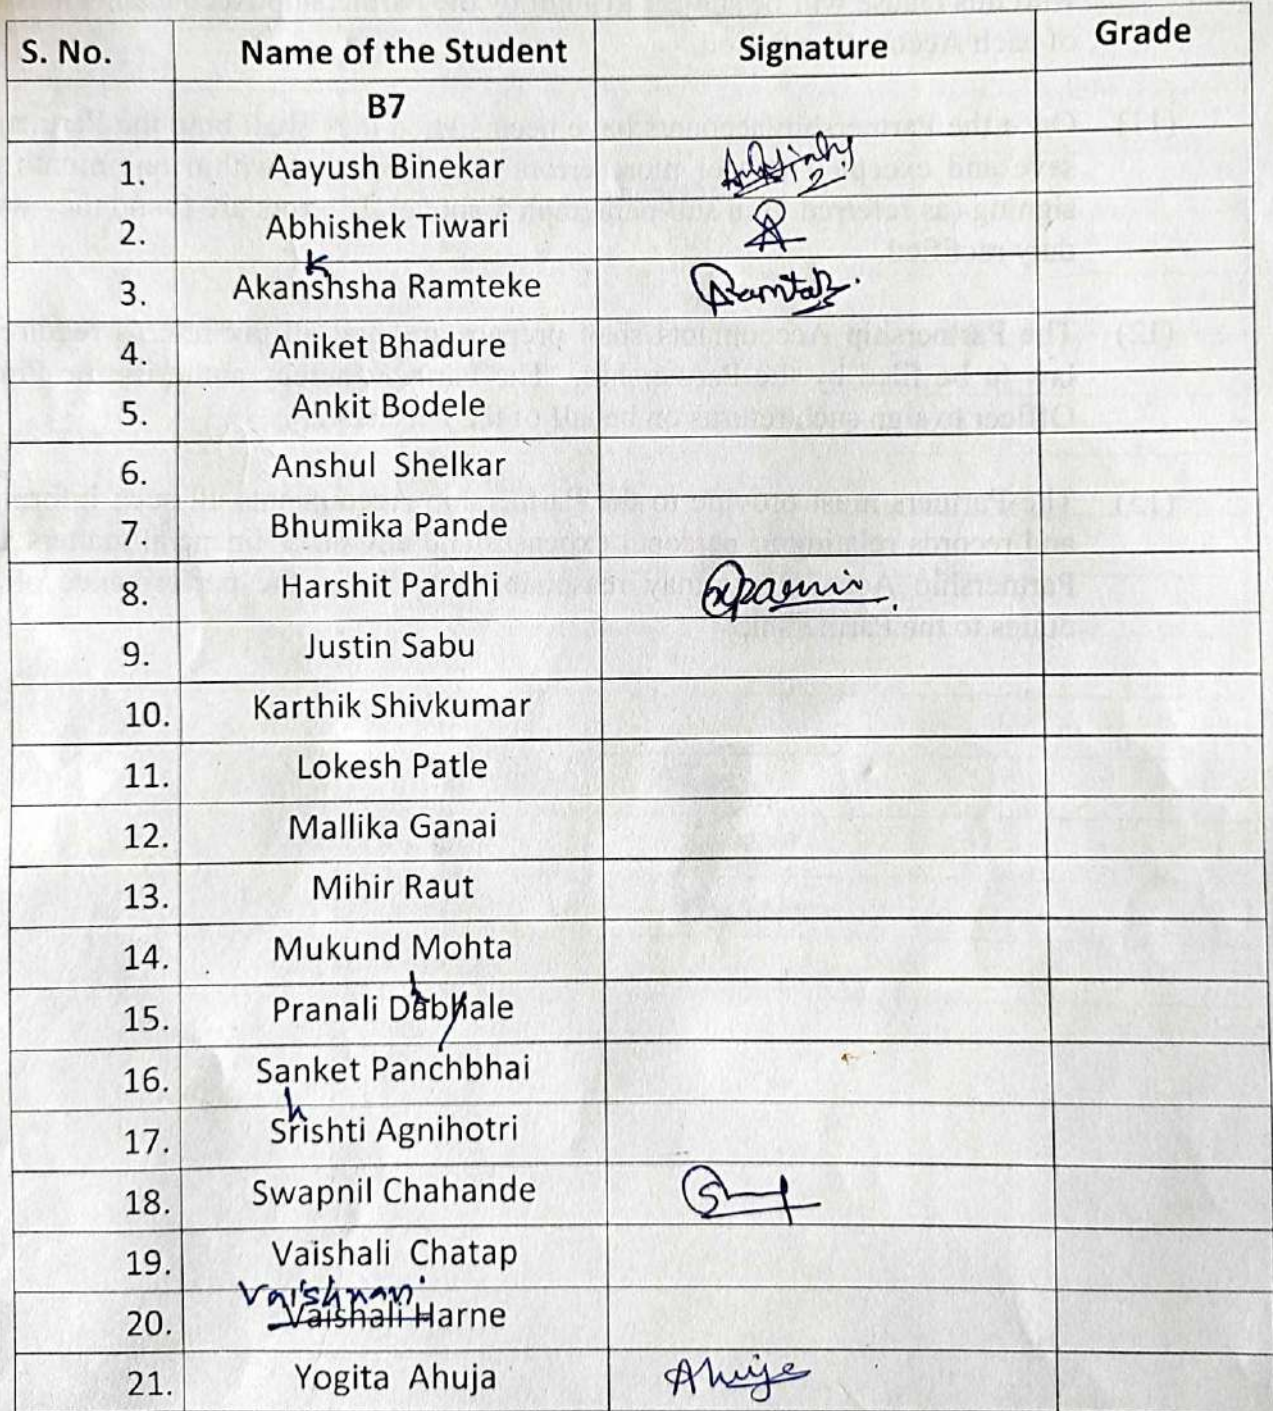 S. No. Name of the Student Signature Grade
B7
1. Aayush Binekar
2. Abhishek Tiwari
k
3. Akanshsha Ramteke Ramteke
4. Aniket Bhadure
5. Ankit Bodele
6. Anshul Shelkar
7. Bhumika Pande
8. Harshit Pardhi
9. Justin Sabu
10. Karthik Shivkumar
11. Lokesh Patle
12. Mallika Ganai
13. Mihir Raut
14. Mukund Mohta
h
15. Pranali Dabhale
16. Sanket Panchbhai
h
17. Srishti Agnihotri
18. Swapnil Chahande
19. Vaishali Chatap
Vaishnavi
20. Vaishali Harne
21. Yogita Ahuja Ahuja